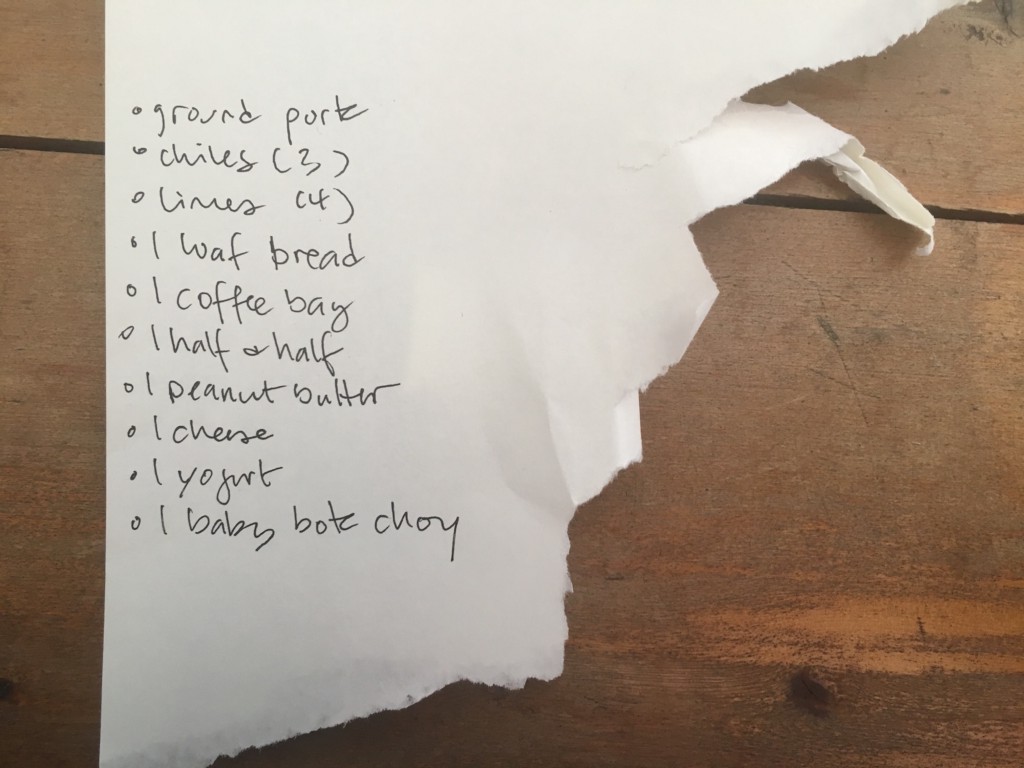 • ground pork
• chiles (3)
• limes (4)
• 1 loaf bread
• 1 coffee bag
• 1 half & half
• 1 peanut butter
• 1 cheese
• 1 yogurt
• 1 baby bok choy